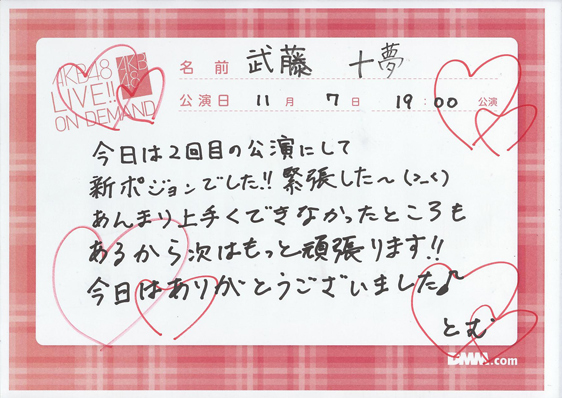 AKB48
LIVE!!
ON DEMAND
AKB
48
名前 武藤 十夢
公演日 11月 7日 19:00 公演
今日は2回目の公演にして
新ポジョンでした!! 緊張した〜(>_<)
あんまり上手くできなかったところも
あるから次はもっと頑張ります!!
今日はありがとうございました♪
とむ
DMM.com